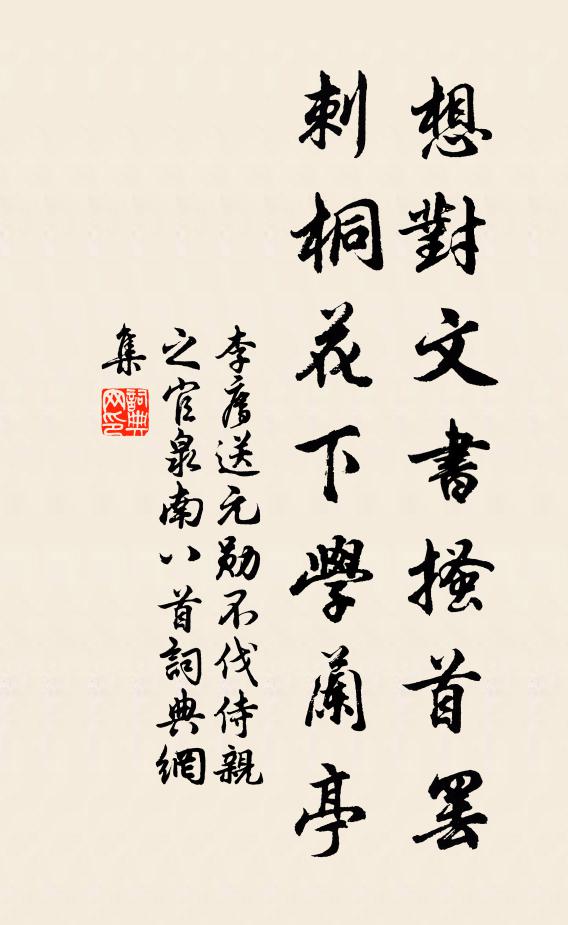 想對文書搔首罷
刺桐花下學蘭亭
李廌送元勛不伐侍親
之官泉南八首詞典網
集
詞典網印